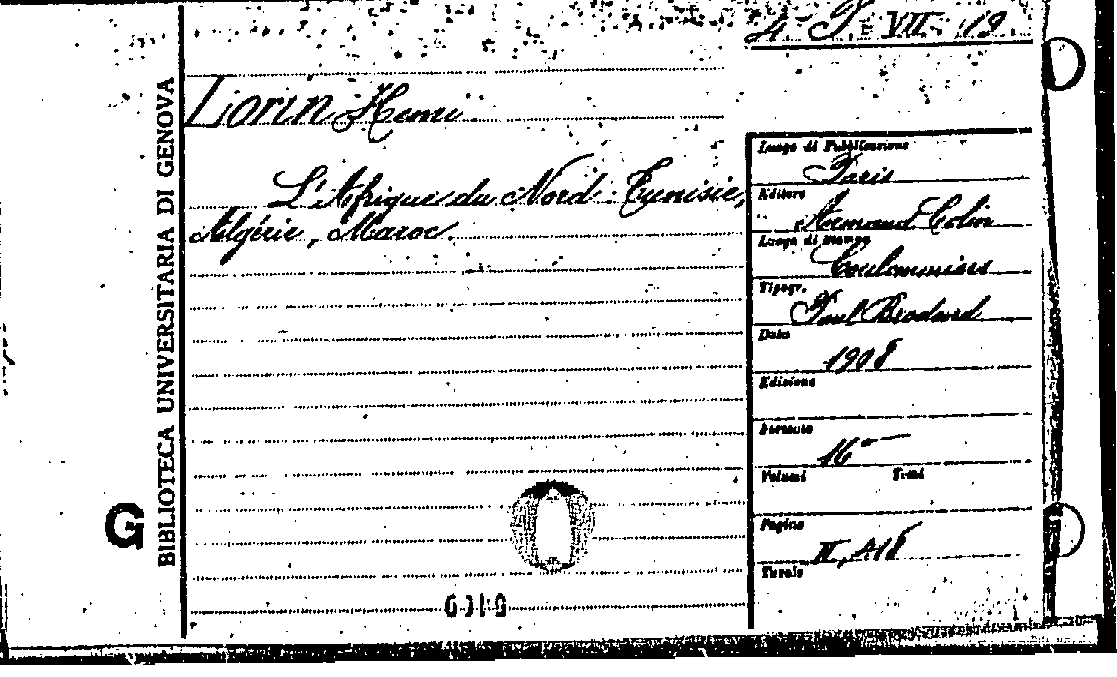 4 T. VII. 19.
Lorin Henri.
L'Afrique du Nord: Tunisie,
Algérie, Maroc.
BIBLIOTECA UNIVERSITARIA DI GENOVA
G
Luogo di Pubblicazione
Paris
Editore
Armand Colin
Luogo di stampa
Coulommiers
Tipogr.
Paul Brodard
Data
1908
Edizione
Formato
16°
Volumi Tomi
Pagine
II, 418
Tavole